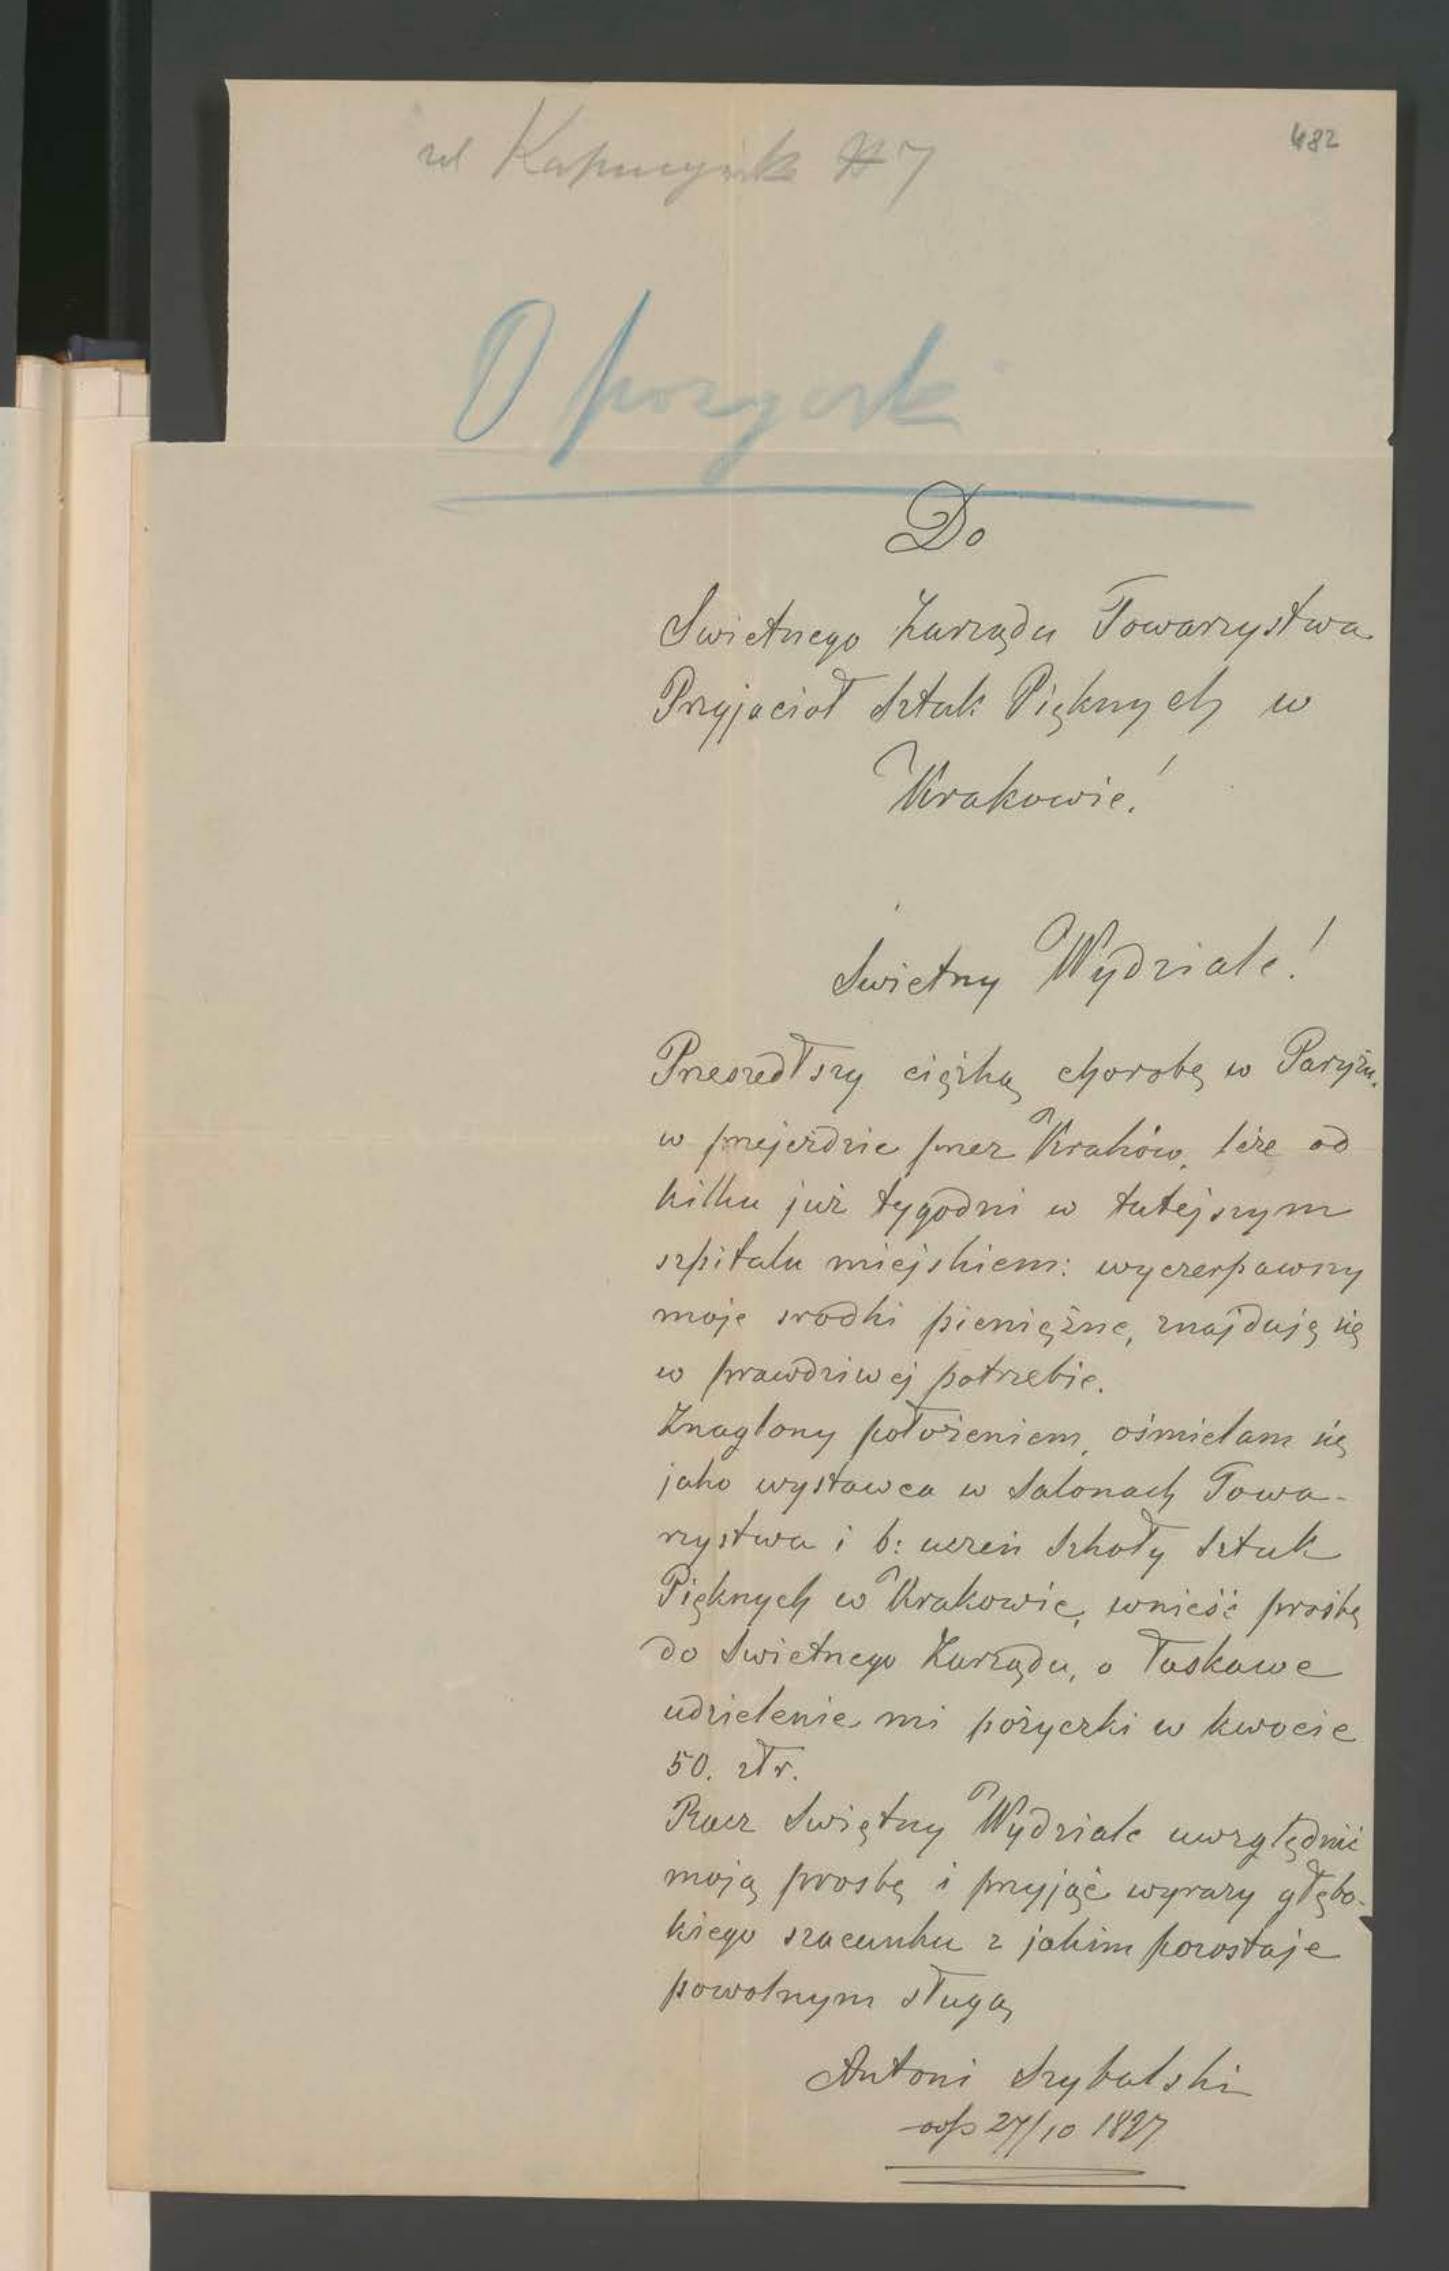 482
ul Kapucyńsk # 7
O pożyczk
Do
Swietnego Zarządu Towarzystwa
Przyjacioł Sztuk Pięknych w
Krakowie!
Swietny Wydziale!
Przeszedłszy ciężką chorobę w Paryżu,
w przejeździe przez Kraków, leże od
kilku już tygodni w tutejszym
szpitalu miejskiem: wyczerpawszy
moje srodki pieniężne, znajduję się
w prawdziwej potrzebie.
Znaglony położeniem, ośmielam się
jako wystawca w Salonach Towa-
rzystwa i b: uczeń Szkoły Sztuk
Pięknych w Krakowie, wnieść prośbę
do Swietnego Zarządu, o łaskawe
udzielenie mi pożyczki w kwocie
50. złr.
Racz Swiętny Wydziale uwzględnić
moją prosbę i przyjąć wyrazy głębo-
kiego szacunku z jakim pozostaje
powolnym sługą
Antoni Szybalski
odp 27/10 1897